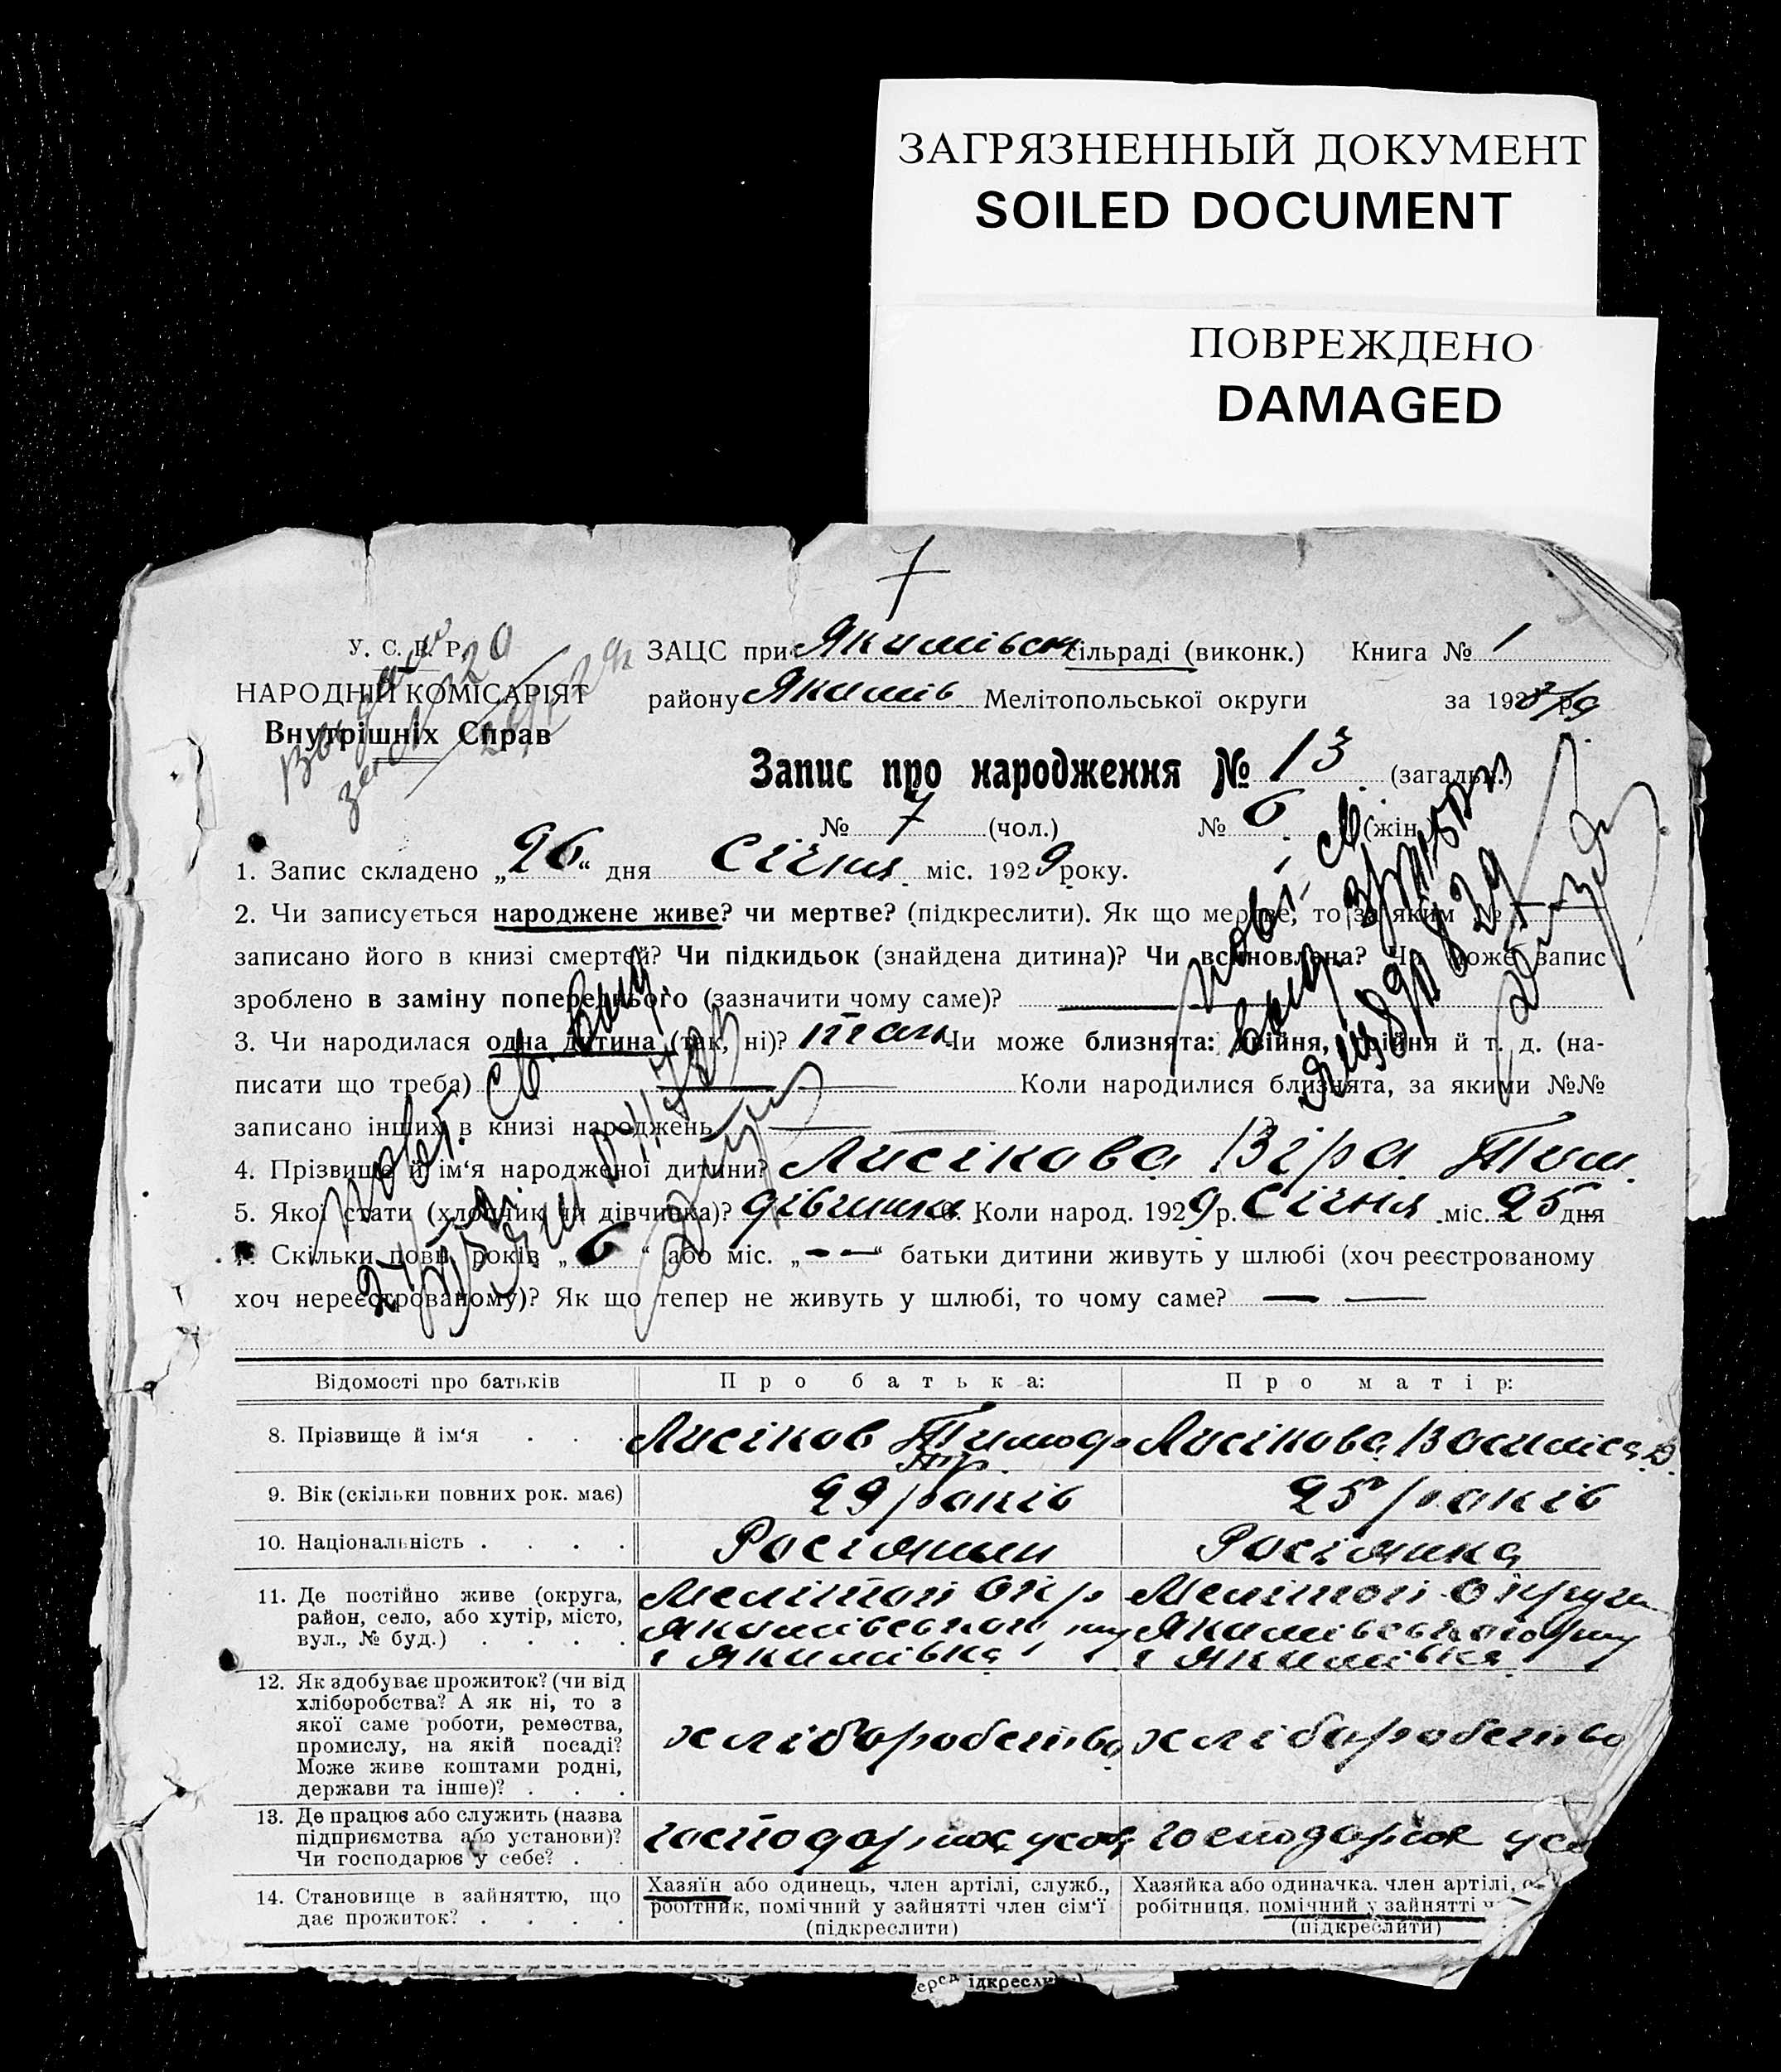 ЗАГРЯЗНЕННЫЙ ДОКУМЕНТ
SOILED DOCUMENT
ПОВРЕЖДЕНО
DAMAGED
7
У. С. Р. Р.
НАРОДНІЙ КОМІСАРІЯТ
Внутрішніх Справ
ЗАЦС при Якимівськ сільраді (виконк.) Книга № 1
району Яким�ів Мелітопольської округи за 1928/9 р.
Запис про народження № 13 (загальн.)
№ 7 (чол.) № 6 (жін.)
1. Запис складено „26“ дня Січня міс. 1929 року.
2. Чи записується народжене живе? чи мертве? (підкреслити). Як що мертве, то за яким №
записано його в книзі смертей? Чи підкидьок (знайдена дитина)? Чи встановлена? Чи може запис
зроблено в заміну попереднього (зазначити чому саме)?
3. Чи народилася одна дитина (так, ні)? так Чи може близнята: двійня, трійня й т. д. (на-
писати що треба) Коли народилися близнята, за якими №№
записано інших в книзі народжень
4. Прізвище й ім‘я народженої дитини? Лисікова Віра Тим
5. Якої стати (хлопчик чи дівчинка)? дівчинка 6. Коли народ. 1929 р. Січня міс. 25 дня
7. Скільки повн. років „6“ або міс. „— —“ батьки дитини живуть у шлюбі (хоч реєстрованому
хоч нереєстрованому)? Як що тепер не живуть у шлюбі, то чому саме? — —
Відомості про батьків Про батька: Про матір:
8. Прізвище й ім‘я Лисіков Тимоф Лисікова Василіса Д.
9. Вік (скільки повних рок. має) 29 років 25 років
10. Національність Росіянин Росіянка
11. Де постійно живе (округа,
район, село, або хутір, місто,
вул., № буд.)
Мелітоп окр
Якимівського
с Якимівка
Мелітоп округи
Якимівського р-ну
с Якимівка
12. Як здобуває прожиток? (чи від
хліборобства? А як ні, то з
якої саме роботи, ремества,
промислу, на якій посаді?
Може живе коштами родні,
держави та інше)?
хліборобство хліборобство
13. Де працює або служить (назва
підприємства або установи)?
Чи господарює у себе?
господарює господарює
14. Становище в зайняттю, що
дає прожиток?
Хазяїн або одинець, член артілі, служб.,
робітник, помічний у зайнятті член сім‘ї
(підкреслити)
Хазяйка або одиначка. член артілі,
робітниця, помічний у зайнятті
(підкреслити)